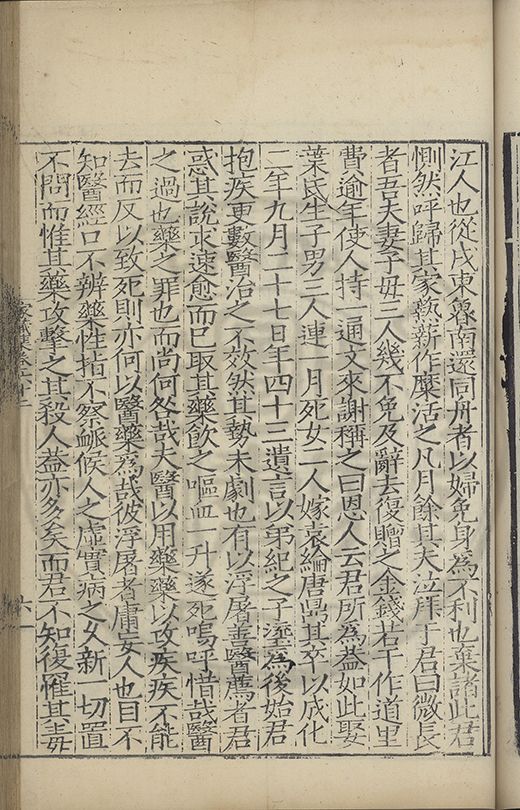 江人也從戍東魯南還同舟者以婦免身為不利也棄諸此君
惻然呼歸其家執薪作糜活之凡月餘其夫泣拜于君曰微長
者吾夫妻子毋三人幾不免及辭去復贐之金錢若干作道里
費逾年使人持一通文來謝稱之曰恩人云君所為葢如此娶
葉氏生子男三人連一月死女二人嫁袁綸唐鼎其卒以成化
二年九月二十七日年四十三遺言以弟紀之子瀅為後始君
抱疾更數醫治之不效然其勢未劇也有以浮屠善醫薦者君
惑其說求速愈而巳取其藥飲之嘔血一升遂死嗚呼惜哉醫
之過也藥之罪也而尚何咎哉夫醫以用藥藥以攻疾疾不能
去而反以致死則亦何以醫藥為哉彼浮屠者庸妄人也目不
知醫經口不辨藥性指不察脈候人之虛實病之久新一切置
不問而惟其藥攻擊之其殺人葢亦多矣而君不知復罹其毒
家藏集卷六十一
六